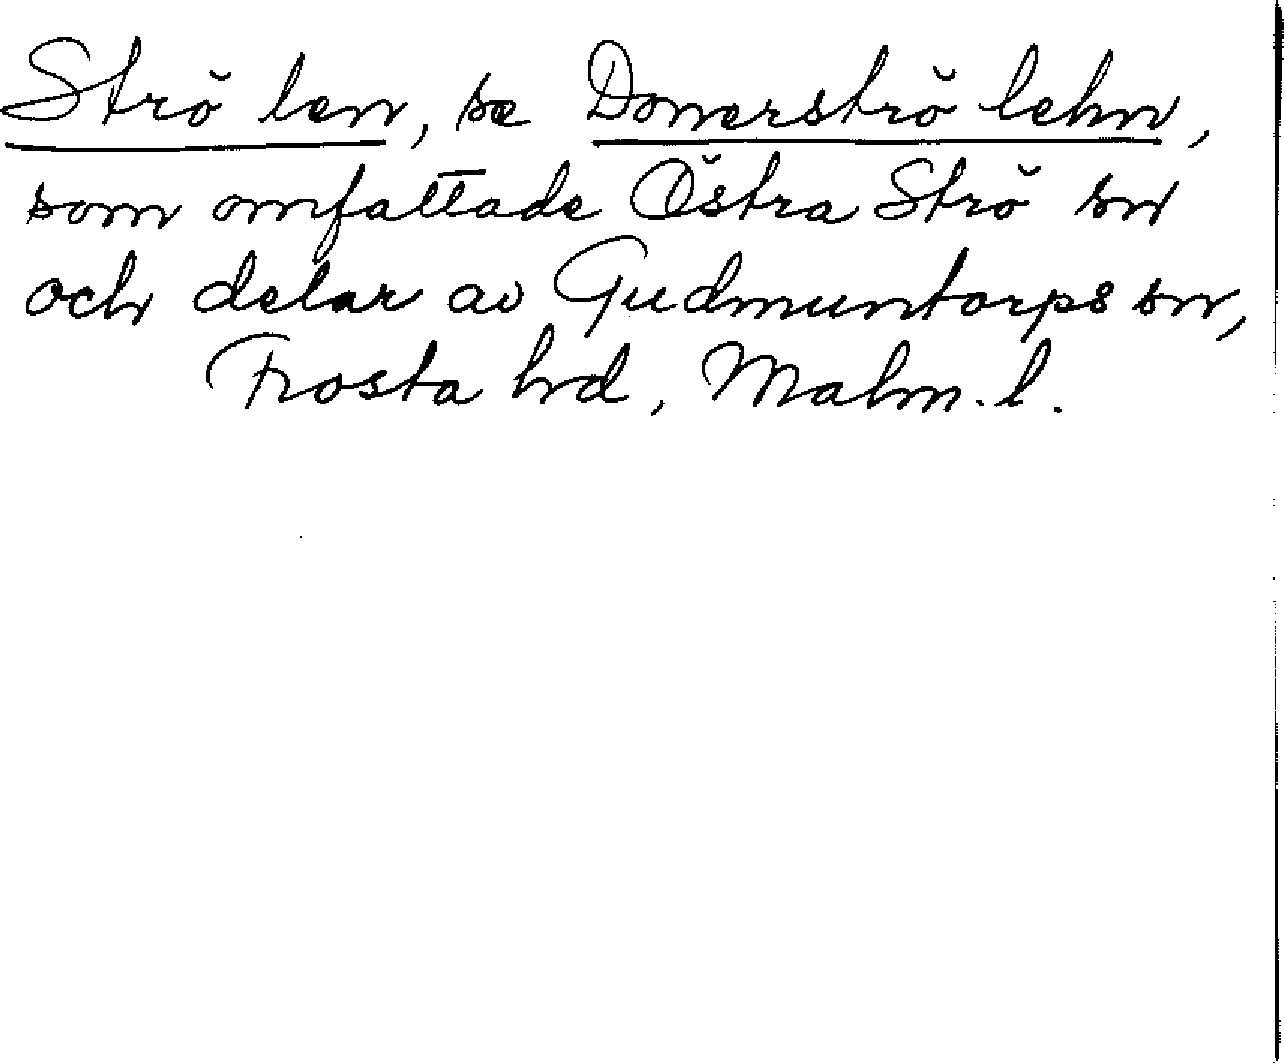 Strö len, se Donnerströ lehn,
som omfattade Östra Strö sn
och delar av Gudmuntorps sn,
Frosta hd, Malm. l.